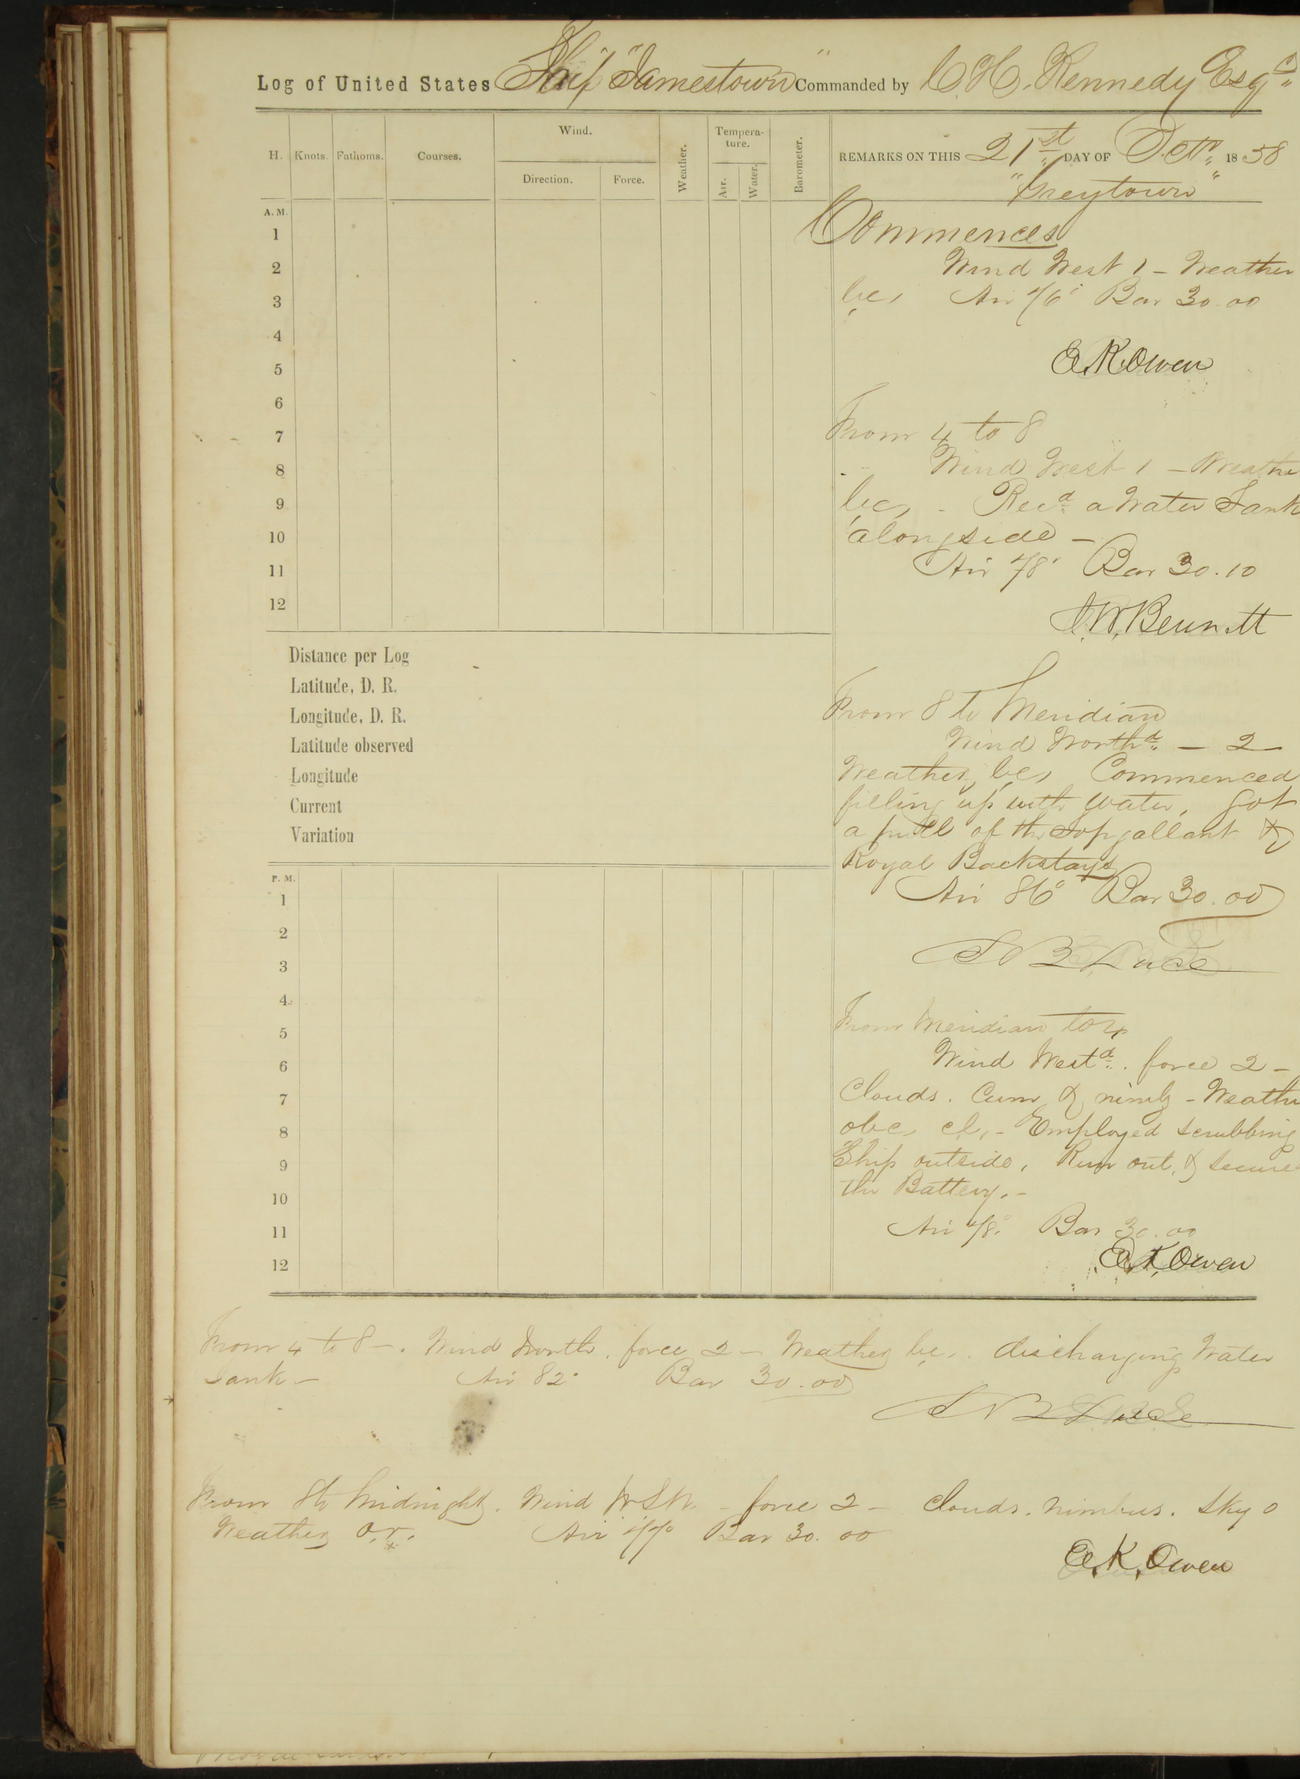 Log of United States Ship "Jamestown" Commanded by C. H. Kennedy Esqr
H. Knots. Fathoms. Courses. Wind. Direction. Force. Weather. Tempera-ture. Air. Water. Barometer.
REMARKS ON THIS 21st DAY OF Octr 1858
"Greytown"
A. M.
1
2
3
4
5
6
7
8
9
10
11
12
Commences
Wind West 1 - Weather
bc, Air 76° Bar 30.00
E. K. Owen
From 4 to 8
Wind West 1 - Weather
bc, - Recd a Water Tank
alongside -
Air 78° Bar 30.10
J. W. Bennett
Distance per Log
Latitude, D. R.
Longitude, D. R.
Latitude observed
Longitude
Current
Variation
From 8 to Meridian
Wind Northd - 2
Weather, bc, Commenced
filling up with water, got
a pull of the topgallant &
Royal Backstays
Air 86° Bar 30.00
S B Luce
P. M.
1
2
3
4
5
6
7
8
9
10
11
12
From Meridian to 4
Wind Westd. force 2 -
Clouds. Cum & nimb - Weather
obc, cl, - Employed scrubbing
Ship outside, Run out, & secure
the Battery. -
Air 78° Bar 30.00
E. K. Owen
From 4 to 8 -. Wind North. force 2 - Weather bc,. discharging Water
Tank - Air 82° Bar 30.00
S B Luce
From 8 to Midnight. Wind WSW. - force 2 - Clouds. Nimbus. Sky 0
Weather o.r. Air 77° Bar 30.00
E. K. Owen